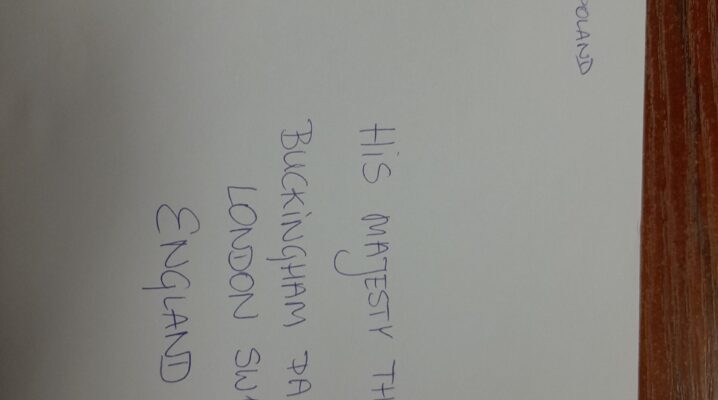 POLAND
HiS MAJESTY TH
BUCKiNGHAM PA
LONDON SW
ENGLAND